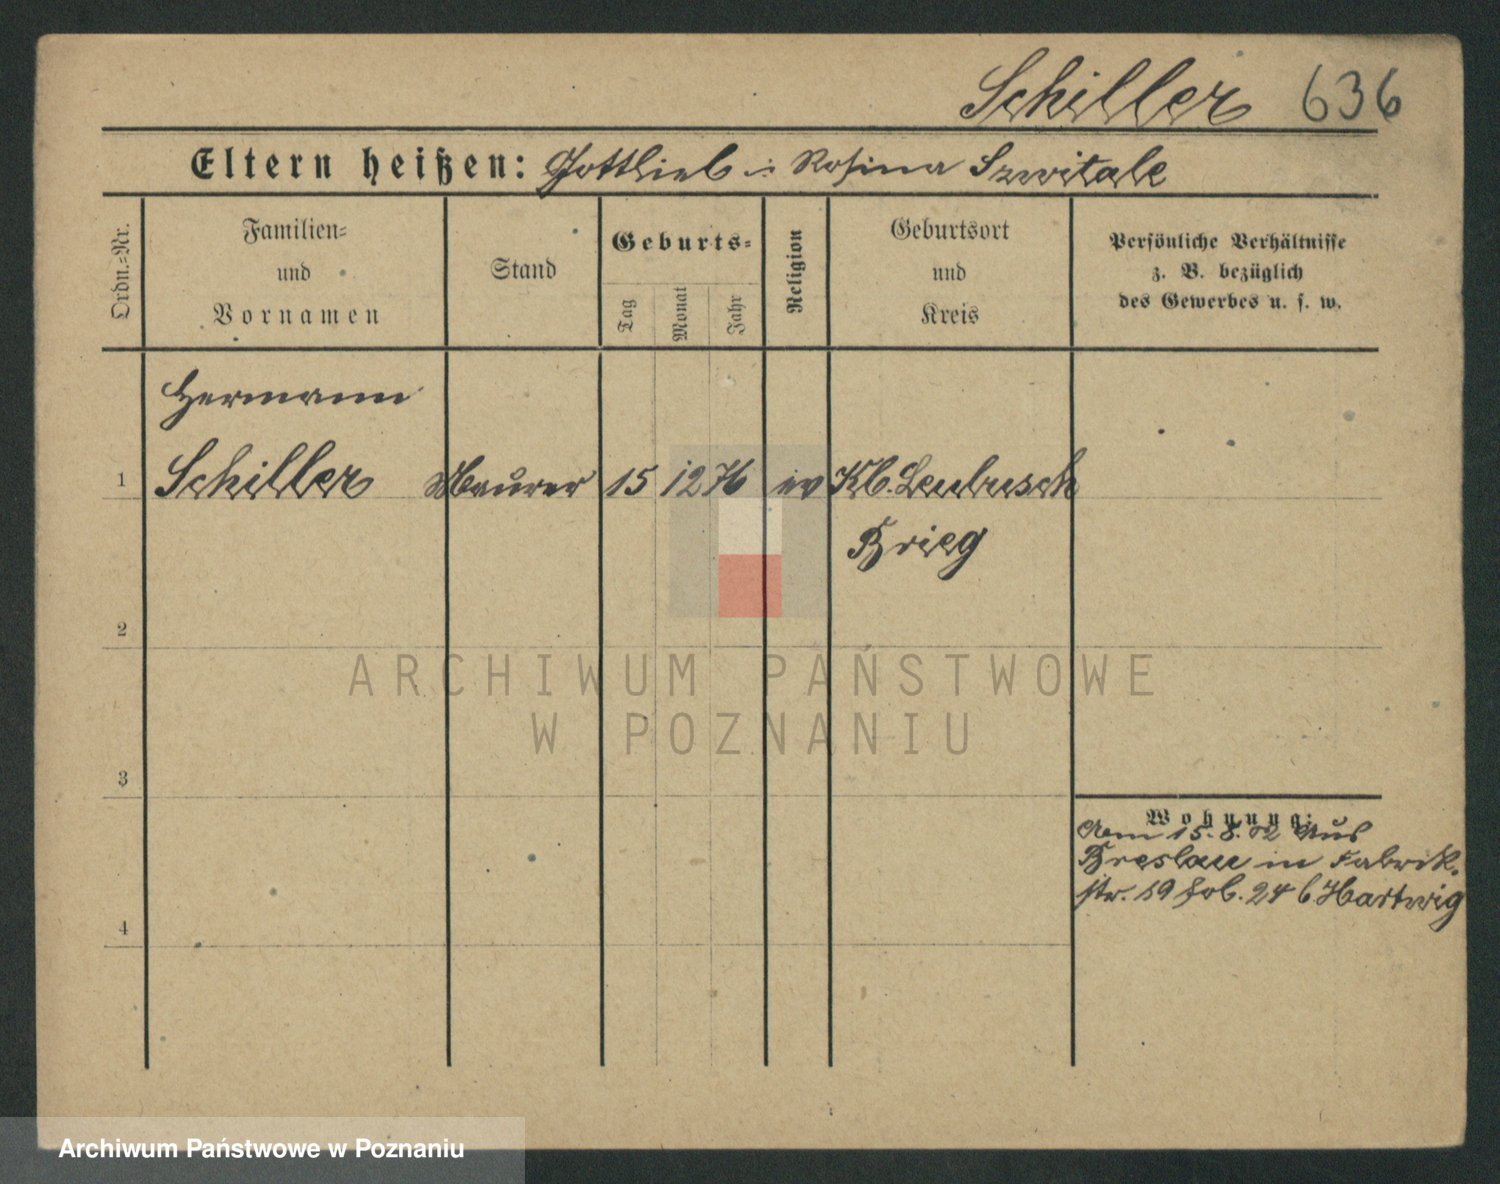 Schiller 636
Eltern heißen: Gottlieb u. Rosina Szwitale
Ordn.=Nr.
Familien=
und
Vornamen
Stand
Geburts=
Tag
Monat
Jahr
Religion
Geburtsort
und
Kreis
Persönliche Verhältnisse
z. B. bezüglich
des Gewerbes u. s. w.
Hermann
1 Schiller Maurer 15 12 76 ev Kl. Leubusch
Brieg
2
ARCHIWUM PAŃSTWOWE
W POZNANIU
3
Wohnung:
Am 15. 8. 02 Aus
Breslau in Fabrik.
str. 19 24 b. Hartwig
4
Archiwum Państwowe w Poznaniu